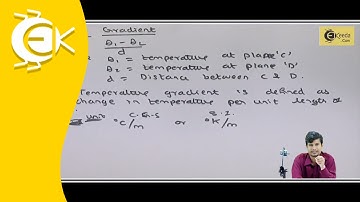 Gradient
θ₁ - θ₂
d
θ₁ = temperature at plane 'C'
θ₂ = temperature at plane 'D'
d = Distance between C & D.
Temperature gradient is defined as
change in temperature per unit length of
Unit C.G.S S.I.
°C/m or °K/m
Ekeeda
.Com